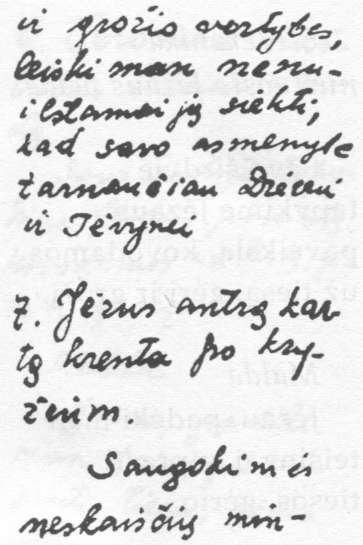 ir grožio vertybes,
leiski man nenu
ilstamai ją siekti,
kad savo asmenybe
tarnaučiau Dievui
ir Tėvynei
7. Jėzus antrą kar
tą krenta po kry-
žium
Saugokimės
neskaisčių min-